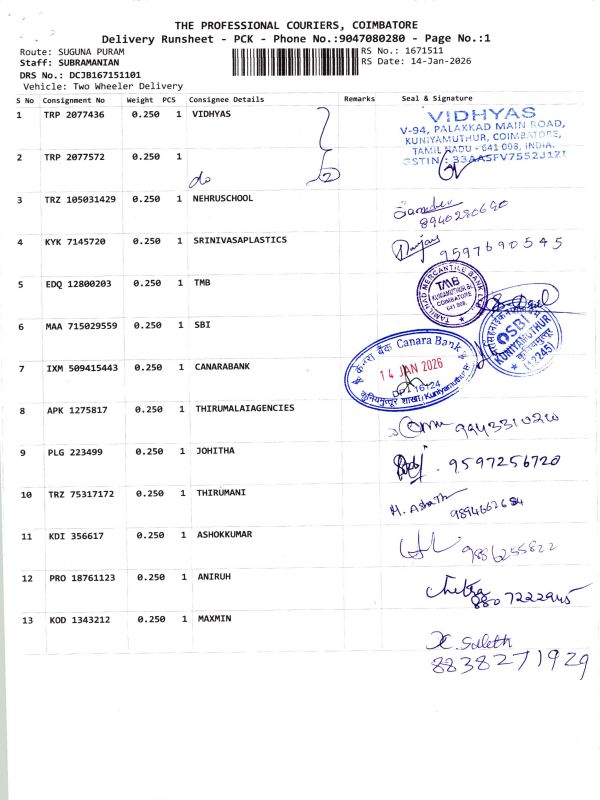 THE PROFESSIONAL COURIERS, COIMBATORE
Delivery Runsheet - PCK - Phone No.:9047080280 - Page No.:1
Route: SUGUNA PURAM
RS No.: 1671511
Staff: SUBRAMANIAN
RS Date: 14-Jan-2026
DRS No.: DCJB167151101
Vehicle: Two Wheeler Delivery
S No Consignment No Weight PCS Consignee Details Remarks Seal & Signature
1 TRP 2077436 0.250 1 VIDHYAS
VIDHYAS
V-94, PALAKKAD MAIN ROAD,
KUNIYAMUTHUR, COIMBATORE,
TAMIL NADU - 641 008, INDIA.
GSTIN : 33AASFV7552J1ZI
2 TRP 2077572 0.250 1
do
3 TRZ 105031429 0.250 1 NEHRUSCHOOL
8940280690
4 KYK 7145720 0.250 1 SRINIVASAPLASTICS
9597690545
5 EDQ 12800203 0.250 1 TMB
TAMILNAD MERCANTILE BANK LTD
TMB
KUNIAMUTHUR BR
COIMBATORE
641 008.
6 MAA 715029559 0.250 1 SBI
SBI
KUNIYAMUTHUR
(12245)
7 IXM 509415443 0.250 1 CANARABANK
केनरा बैंक Canara Bank
14 JAN 2026
DP : 16124
Kuniyamuthur
8 APK 1275817 0.250 1 THIRUMALAIAGENCIES
9443310210
9 PLG 223499 0.250 1 JOHITHA
9597256720
10 TRZ 75317172 0.250 1 THIRUMANI
M. Asbath
9894662684
11 KDI 356617 0.250 1 ASHOKKUMAR
9886255822
12 PRO 18761123 0.250 1 ANIRUH
Chitra
8807222945
13 KOD 1343212 0.250 1 MAXMIN
8838271929